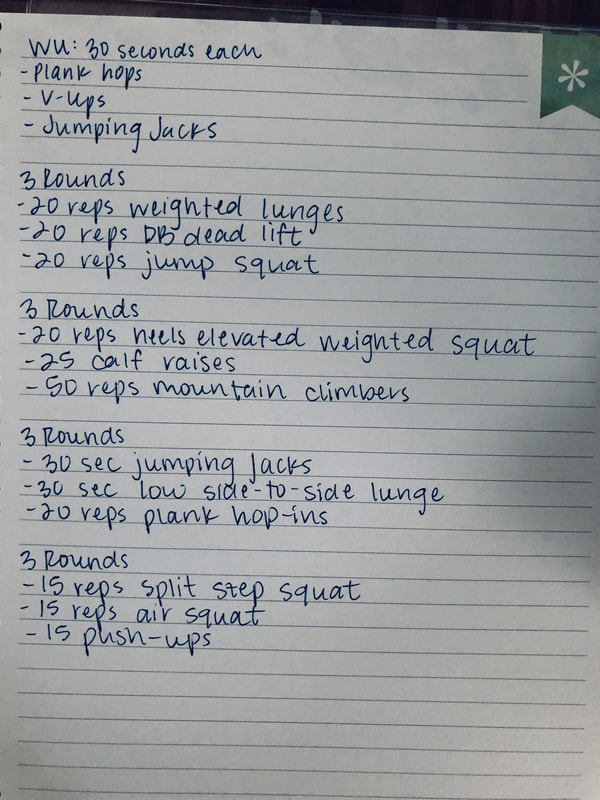 WU: 30 seconds each
- Plank hops
- V-Ups
- Jumping Jacks
3 Rounds
- 20 reps weighted lunges
- 20 reps DB dead lift
- 20 reps jump squat
3 Rounds
- 20 reps heels elevated weighted squat
- 25 calf raises
- 50 reps mountain climbers
3 Rounds
- 30 sec jumping jacks
- 30 sec low side-to-side lunge
- 20 reps plank hop-ins
3 Rounds
- 15 reps split step squat
- 15 reps air squat
- 15 push-ups